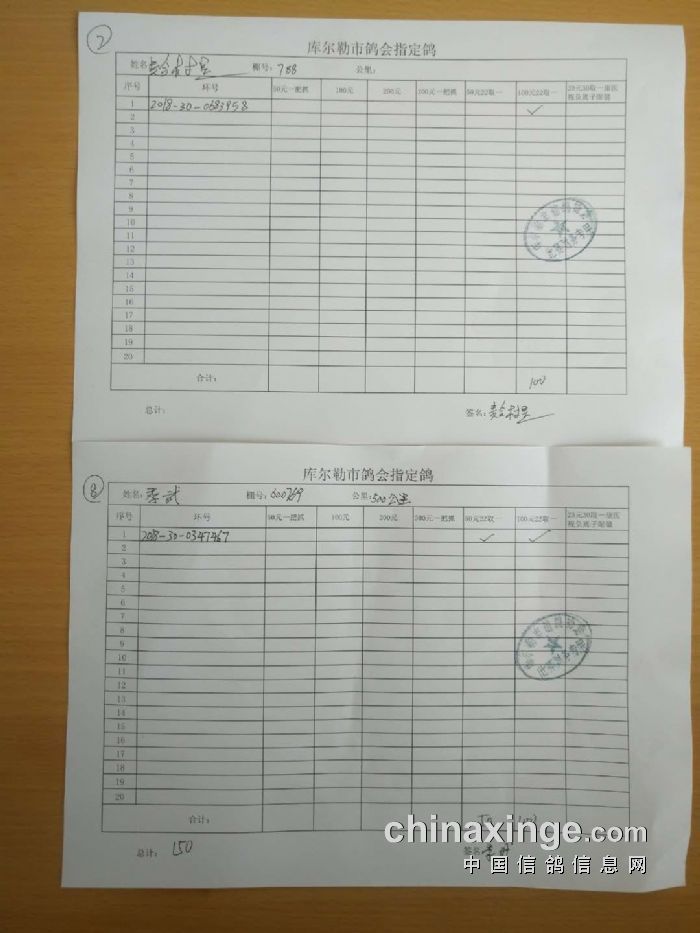 2
库尔勒市鸽会指定鸽
姓名: 棚号: 788 公里:
序号 环号 50元一把抓 100元 200元 200元一把抓 50元22取一 100元22取一
1 2018-30-0683958 ✓
2
3
4
5
6
7
8
9
10
11
12
13
14
15
16
17
18
19
20
合计: 100
总计: 签名:
8
库尔勒市鸽会指定鸽
姓名: 李武 棚号: 600769 公里: 500公里
序号 环号 50元一把抓 100元 200元 200元一把抓 50元22取一 100元22取一
1 2018-30-0347467 ✓ ✓
2
3
4
5
6
7
8
9
10
11
12
13
14
15
16
17
18
19
20
合计: 50 100
总计: 150 签名:
chinaxinge.com
中国信鸽信息网